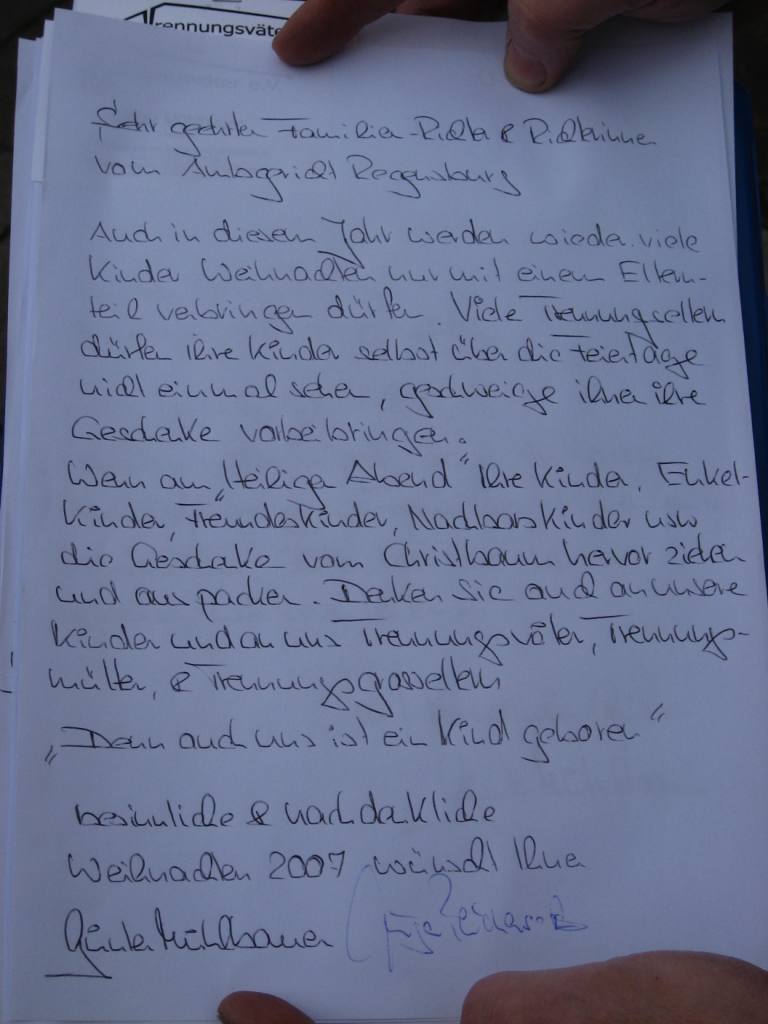 rennungsväte
Sehr geehrte Familien-Richter & Richterinnen
vom Amtsgericht Regensburg
Auch in diesem Jahr werden wieder viele
Kinder Weihnachten nur mit einem Eltern-
teil verbringen dürfen. Viele Trennungseltern
dürfen ihre Kinder selbst über die Feiertage
nicht einmal sehen, geschweige ihnen ihre
Geschenke vorbeibringen.
Wenn am „Heiligen Abend" Ihre Kinder, Enkel-
kinder, Freundeskinder, Nachbarskinder usw
die Geschenke vom Christbaum hervor ziehen
und auspacken. Denken Sie auch an unsere
Kinder und an uns Trennungsväter, Trennungs-
mütter, & Trennungsgrosseltern
„Denn auch uns ist ein Kind geboren"
besinnliche & nachdenkliche
Weihnachten 2007 wünscht Ihnen
Günter Mühlbauer